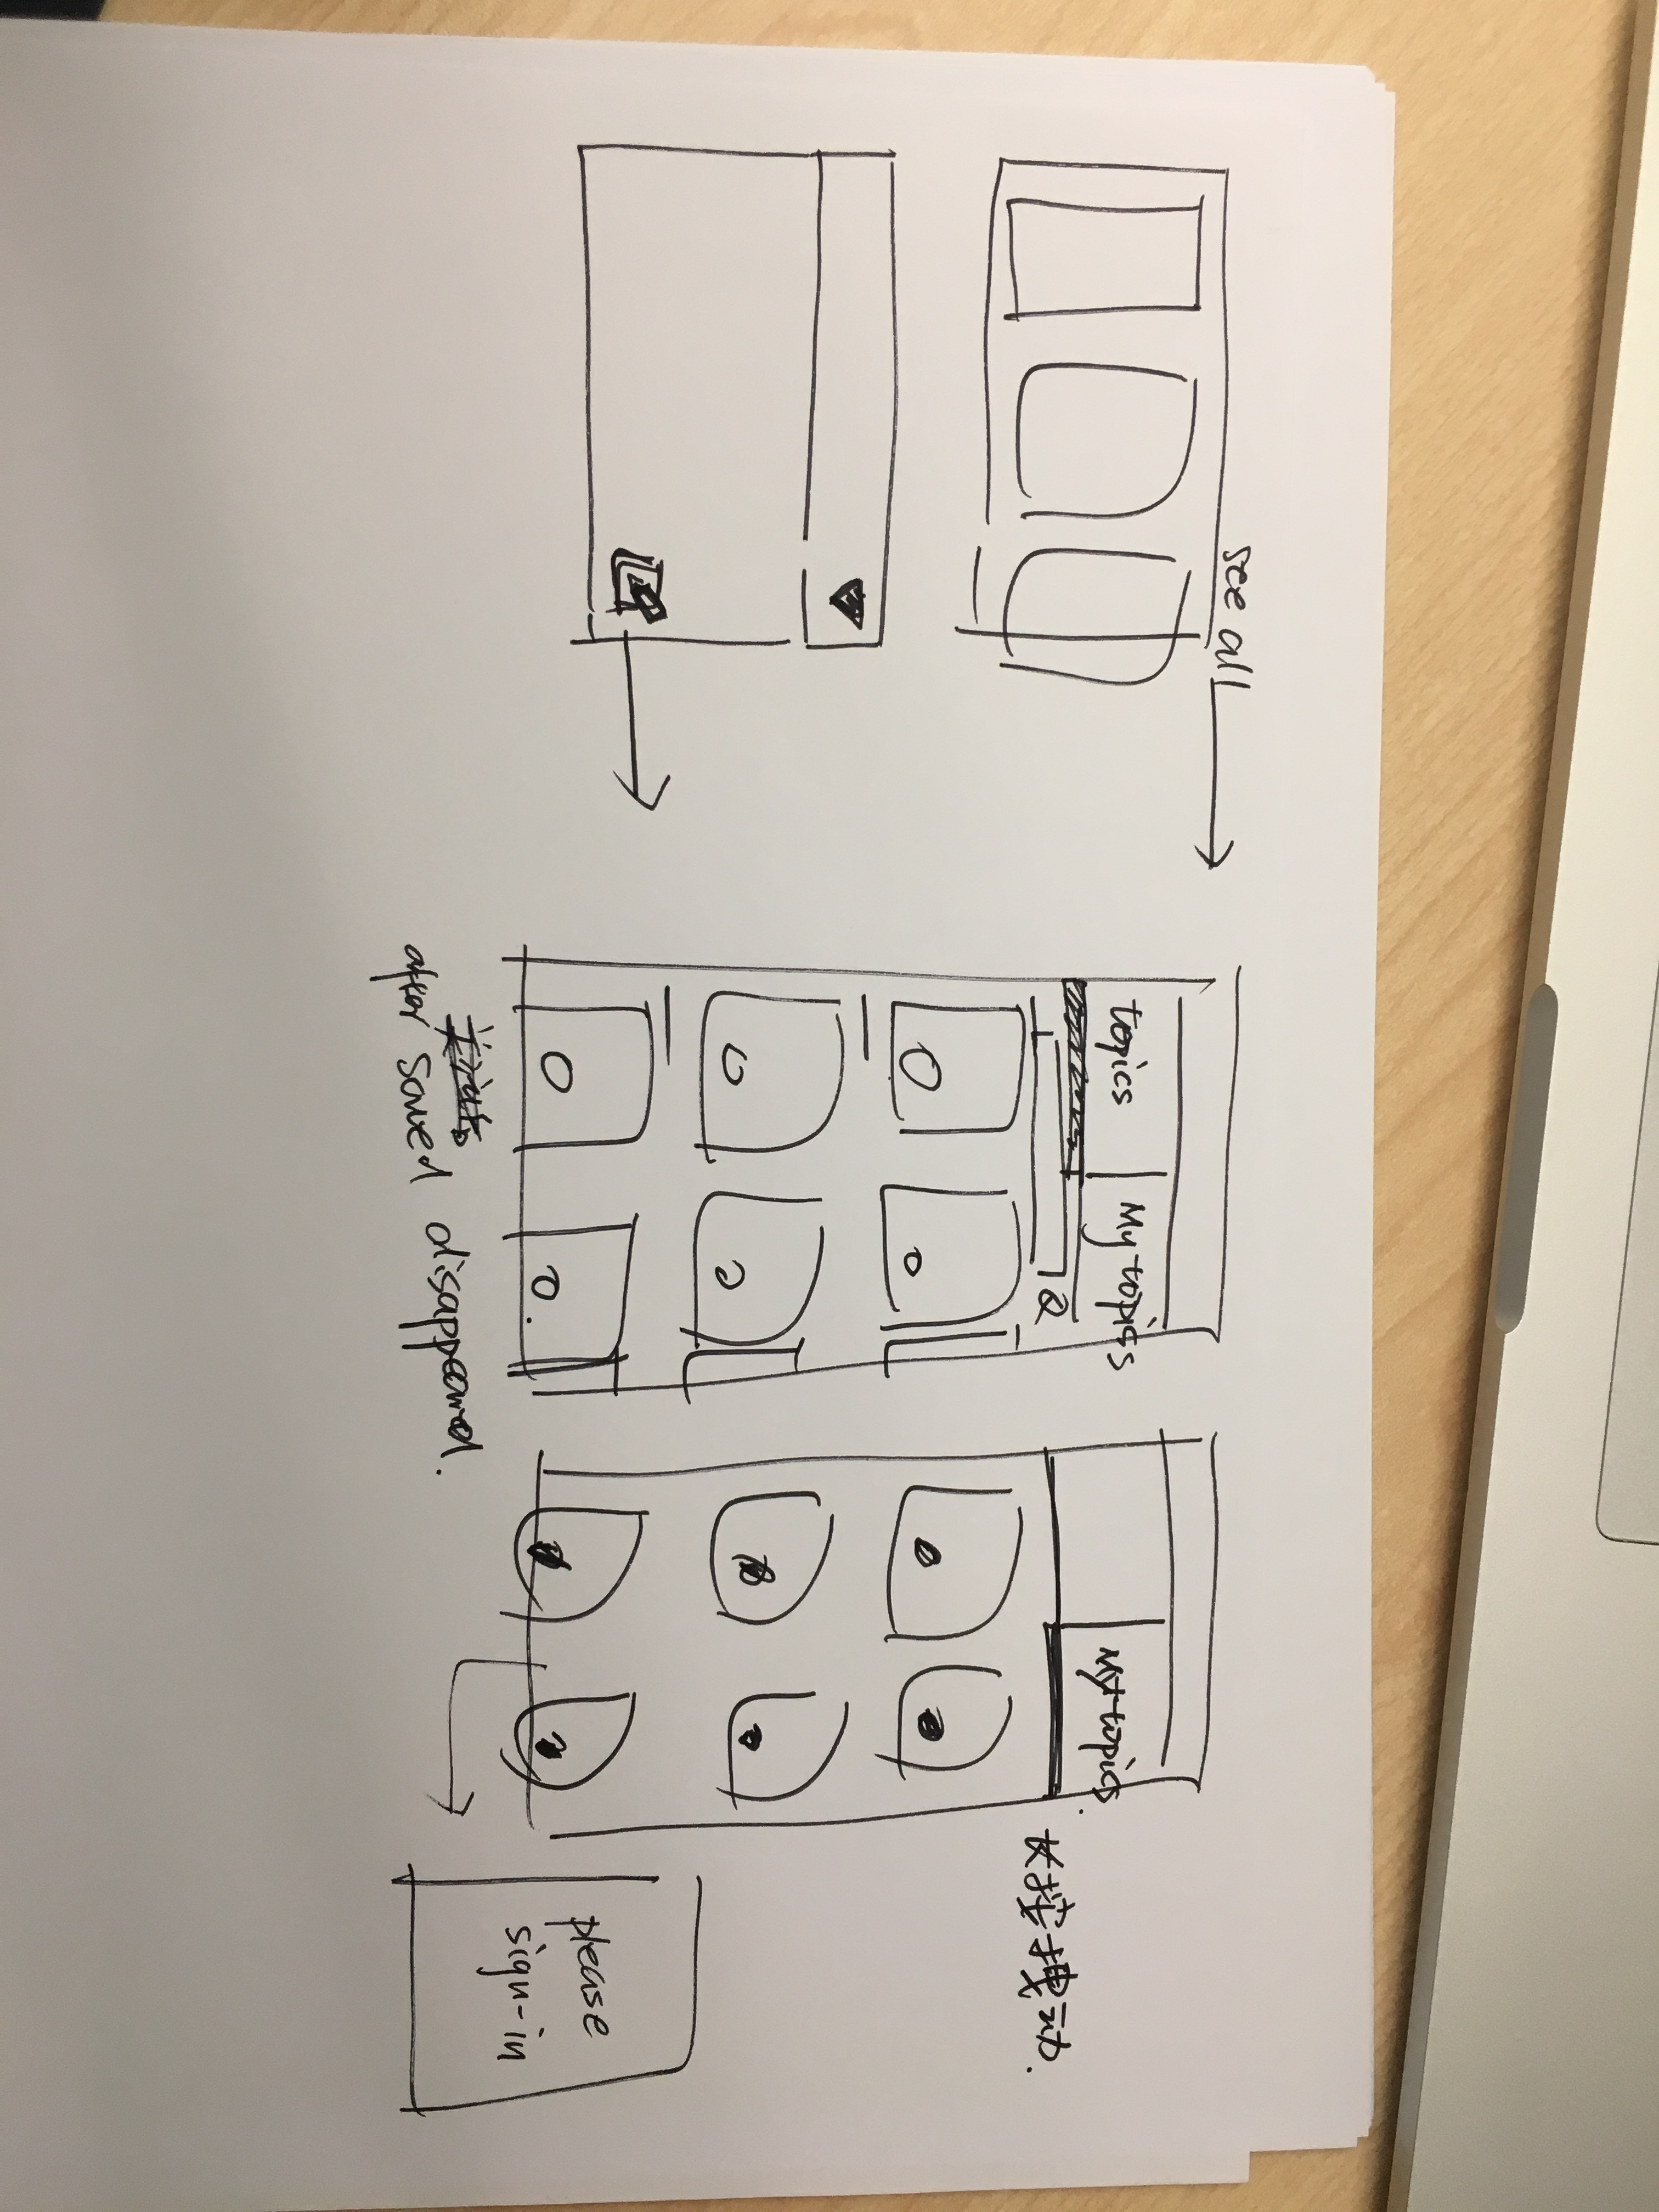 see all
topics
My topics
after saved disappeared.
My topics.
长按拽动.
please
sign-in